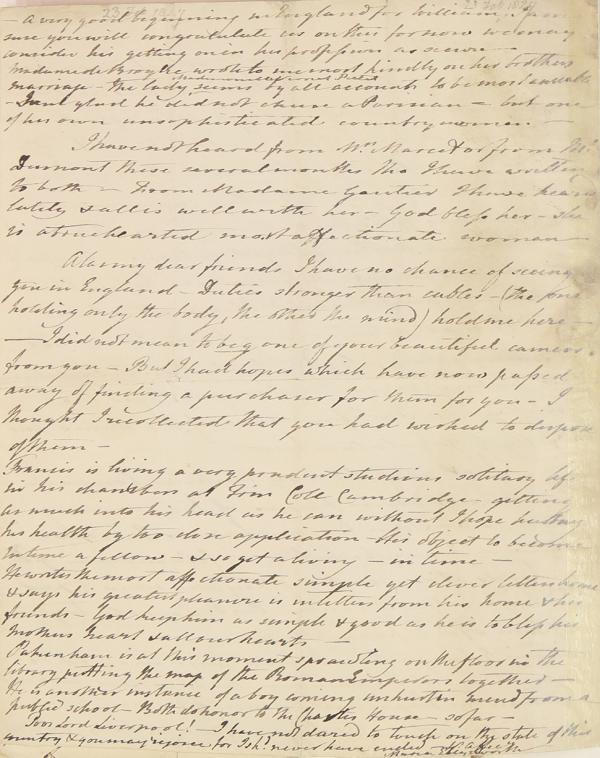 23 Feb 1827
— A very good beginning in England for William, I am
sure you will congratulate us on this for now we may
consider his getting on in his profession as secure —
Madame de Broglie wrote to me most kindly on her brothers
marriage — The lady seems by all accounts to be most amiable
— I am glad he did not chuse a Parisian — but one
of his own unsophisticated country women —
I have not heard from Mrs Marcet or from
Dumont these several months tho I have written
to both — From Madame Gautier I have heard
lately & all is well with her — God bless her — she
is a truehearted most affectionate woman —
Alas my dear friends I have no chance of seeing
you in England — Duties stronger than cables — (the one
holding only the body, the other the mind) hold me here —
— I did not mean to beg one of your beautiful cameos
from you — But I had hopes which have now passed
away of finding a purchaser for them for you — I
thought I recollected that you had wished to dispose
of them —
Francis is living a very prudent studious solitary life
in his chambers at Trin Coll Cambridge — getting
as much into his head as he can without I hope hurting
his health by too close application — His object to become
in time a fellow — & so get a living — in time —
He writes the most affectionate simple yet clever letters home
& says his greatest pleasure is in letters from his home & his
friends — God keep him as simple & good as he is to bless his
mothers heart & all our hearts —
Pakenham is at this moment sprawling on the floor in the
library putting the map of the Roman Emperors together —
He is another instance of a boy coming unhurt in mind from a
public school — Both do honor to the Charter House — so far —
Poor Lord Liverpool! — I have not dared to touch on the state of this
country & you may rejoice for I shd never have ended
Maria Edgeworth